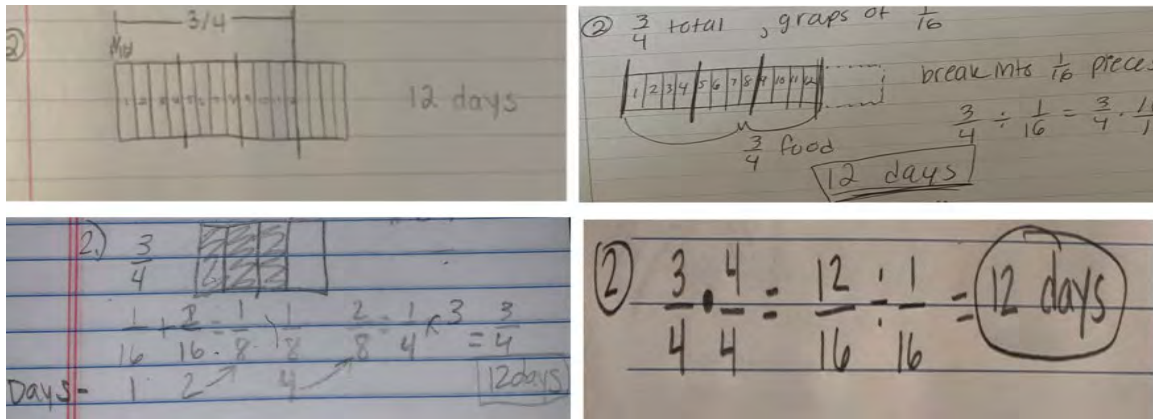 3/4
2
12 days
1 2 3 4 5 6 7 8 9 10 11 12
② 3/4 total, graps of 1/16
1 2 3 4 5 6 7 8 9 10 11 12
break into 1/16 pieces
3/4 ÷ 1/16 = 3/4 ·
3/4 food
12 days
2.) 3/4
1/16 + 1/16 = 1/8 , 1/8 2/8 = 1/4 × 3 = 3/4
Days- 1 2 4
12 days
② 3/4 · 4/4 = 12/16 ÷ 1/16 = 12 days